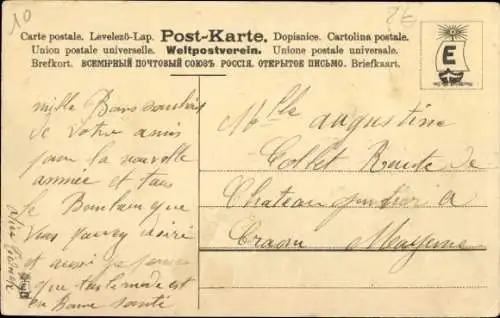 10
Carte postale. Levelező-Lap. Post-Karte. Dopisnice. Cartolina postale.
Union postale universelle. Weltpostverein. Unione postale universale.
Brefkort. ВСЕМІРНЫЙ ПОЧТОВЫЙ СОЮЗЪ. РОССІЯ. ОТКРЫТОЕ ПИСЬМО. Briefkaart.
E
mille Bons souhais
de votre amis
pour la nouvelle
annnée et tous
le Bonheur que
vous pouvez désiré
et aussi je pense
que tout le mode est
en Bonne Santé
Mlle augustine
Collet Route de
Chateau gontier a
Craon Mayenne